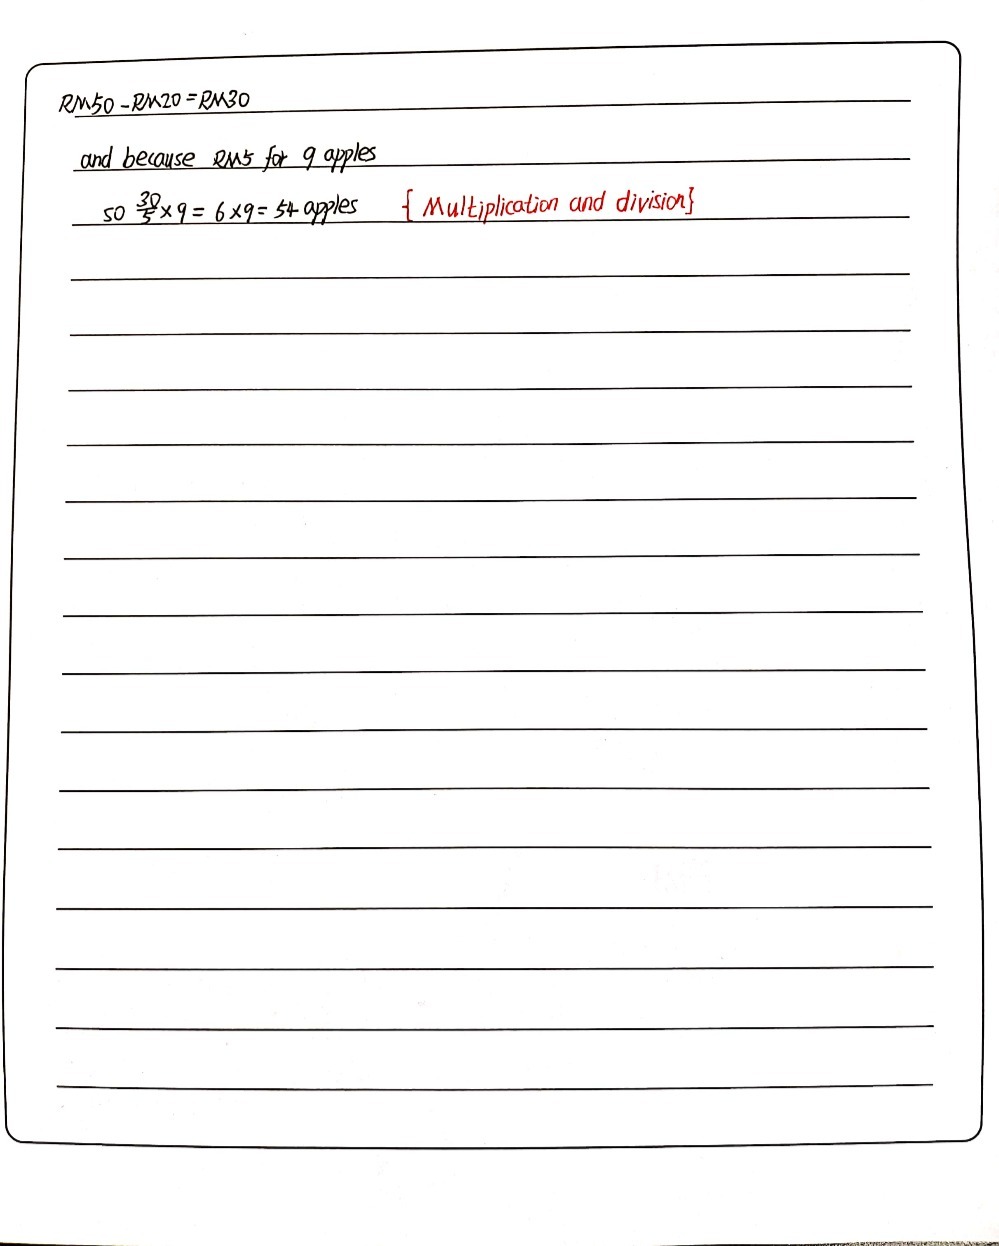 RM50 - RM20 = RM30
and because RM5 for 9 apples
so 30/5 × 9 = 6 × 9 = 54 apples { Multiplication and division}